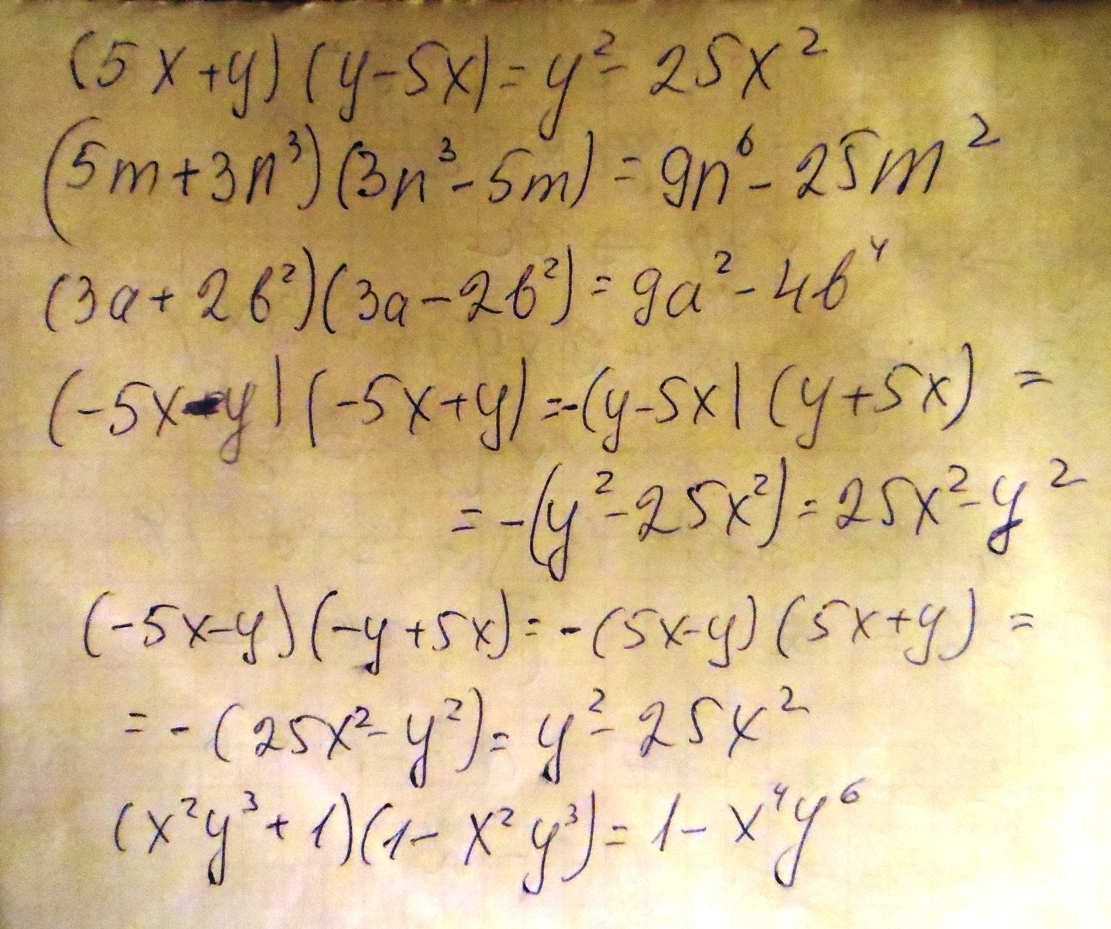 (5x+y)(y-5x)=y²-25x²
(5m+3n³)(3n³-5m)=9n⁶-25m²
(3a+2b²)(3a-2b²)=9a²-4b⁴
(-5x-y)(-5x+y)=-(y-5x)(y+5x)=
=-(y²-25x²)=25x²-y²
(-5x-y)(-y+5x)=-(5x-y)(5x+y)=
=-(25x²-y²)=y²-25x²
(x²y³+1)(1-x²y³)=1-x⁴y⁶